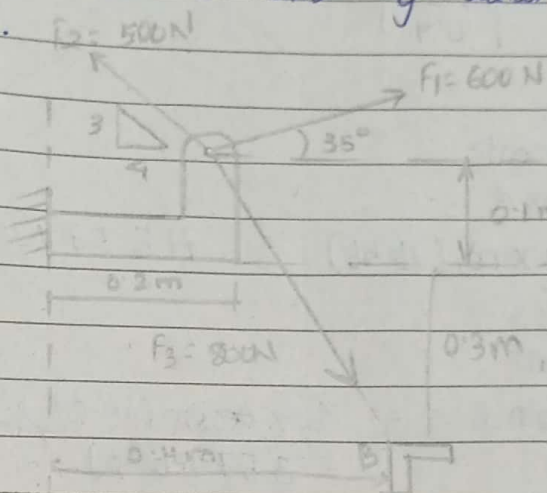 F₂ = 500N
F₁ = 600 N
3
4
35°
0.1m
0.2m
F₃ = 800N
0.3m
0.4m
B